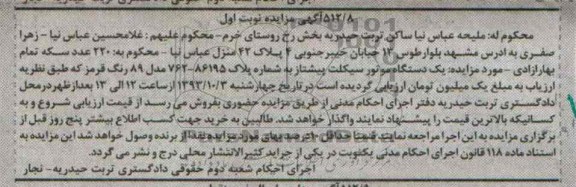 ۵۱۲/۸/آگهی مزایده نوبت اول
محکوم له: ملیحه عباس نیا ساکن تربت حیدریه بخش رخ روستای خرم- محکوم علیهم: غلامحسین عباس نیا - زهرا
صفری به ادرس مشهد بلوارطوس ۱۳ خیابان خیبرجنوبی ۴ پلاک ۴۲ منزل عباس نیا - محکوم به: ۲۲۰ عدد سکه تمام
بهارازادی - مورد مزایده: یک دستگاه موتور سیکلت پیشتاز به شماره پلاک ۸۶۱۹۵-۷۶۲ مدل ۸۹ رنگ قرمز که طبق نظریه
ارزیاب به مبلغ یک میلیون تومان ارزیابی گردیده است در تاریخ چهارشنبه ۱۳۹۲/۱۰/۳ ازساعت ۱۲ الی ۱۳ بعدازظهر درمحل
دادگستری تربت حیدریه دفتر اجرای احکام مدنی از طریق مزایده حضوری بفروش می رسد از قیمت ارزیابی شروع و به
کسانیکه بالاترین قیمت را پیشنهاد نمایند واگذار خواهد شد. طالبین به خرید جهت کسب اطلاع بیشتر پنج روز قبل از
برگزاری مزایده به این اجرا مراجعه نمایند ضمنا حداقل ۱۰ درصد بهای مورد مزایده نقدا از برنده وصول خواهد شد این مزایده به
استناد ماده ۱۱۸ قانون اجرای احکام مدنی یکنوبت در یکی از جراید کثیرالانتشار محلی درج و نشر می گردد.
اجرای احکام شعبه دوم حقوقی دادگستری تربت حیدریه- نجار